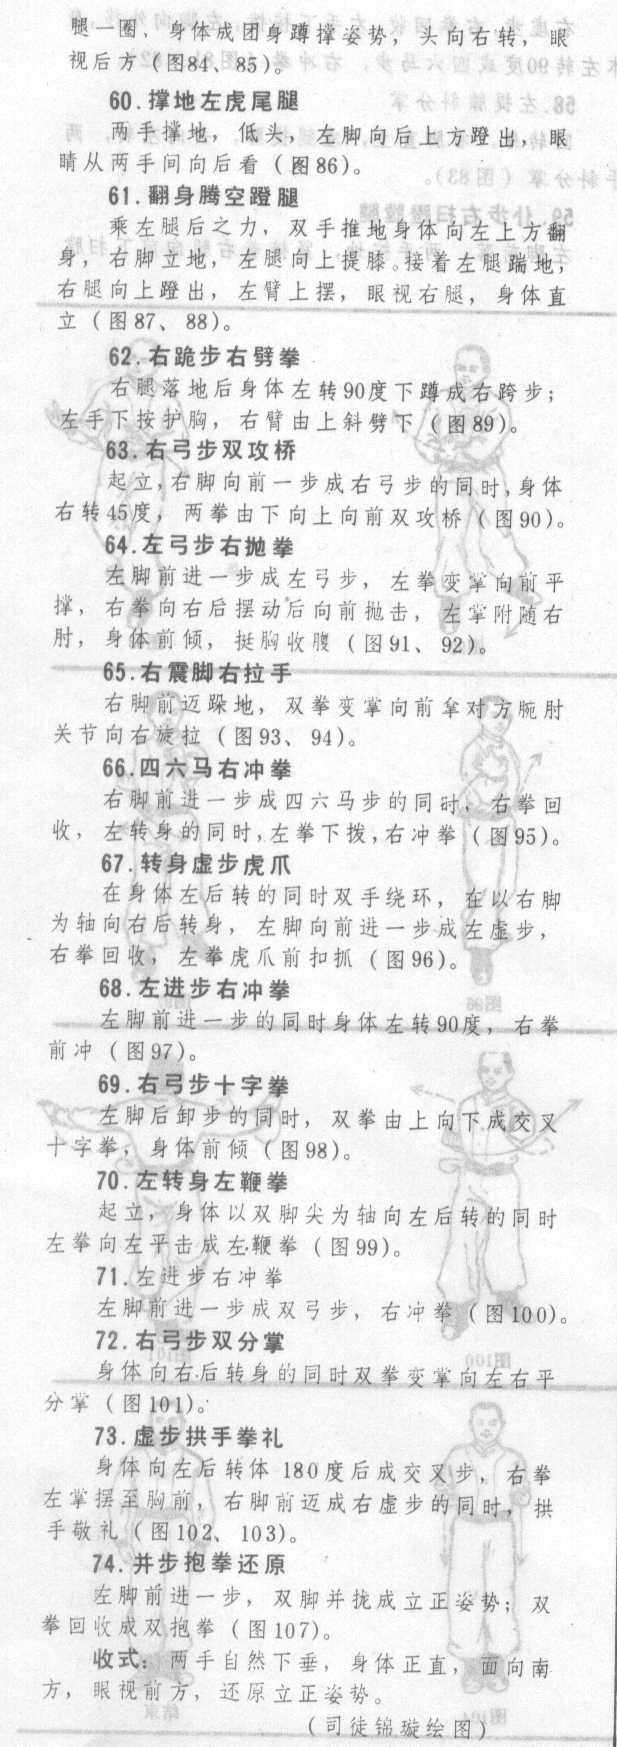 腿一圈，身体成团身蹲撑姿势，头向右转，眼
视后方（图84、85）。
60.撑地左虎尾腿
两手撑地，低头，左脚向后上方蹬出，眼
睛从两手间向后看（图86）。
61.翻身腾空蹬腿
乘左腿后之力，双手推地身体向左上方翻
身，右脚立地，左腿向上提膝。接着左腿踹地，
右腿向上蹬出，左臂上摆，眼视右腿，身体直
立（图87、88）。
62.右跪步右劈拳
右腿落地后身体左转90度下蹲成右跨步；
左手下按护胸，右臂由上斜劈下（图89）。
63.右弓步双攻桥
起立，右脚向前一步成右弓步的同时，身体
右转45度，两拳由下向上向前双攻桥（图90）。
64.左弓步右抛拳
左脚前进一步成左弓步，左拳变掌向前平
撑，右拳向右后摆动后向前抛击，左掌附随右
肘，身体前倾，挺胸收腹（图91、92）。
65.右震脚右拉手
右脚前迈跺地，双拳变掌向前拿对方腕肘
关节向右旋拉（图93、94）。
66.四六马右冲拳
右脚前进一步成四六马步的同时，右拳回
收，左转身的同时，左拳下拨，右冲拳（图95）。
67.转身虚步虎爪
在身体左后转的同时双手绕环，在以右脚
为轴向右后转身，左脚向前进一步成左虚步，
右拳回收，左拳虎爪前扣抓（图96）。
68.左进步右冲拳
左脚前进一步的同时身体左转90度，右拳
前冲（图97）。
69.右弓步十字拳
左脚后卸步的同时，双拳由上向下成交叉
十字拳，身体前倾（图98）。
70.左转身左鞭拳
起立，身体以双脚尖为轴向左后转的同时
左拳向左平击成左鞭拳（图99）。
71.左进步右冲拳
左脚前进一步成双弓步，右冲拳（图100）。
72.右弓步双分掌
身体向右后转身的同时双拳变掌向左右平
分掌（图101）。
73.虚步拱手拳礼
身体向左后转体180度后成交叉步，右拳
左掌摆至胸前，右脚前迈成右虚步的同时，拱
手敬礼（图102、103）。
74.并步抱拳还原
左脚前进一步，双脚并拢成立正姿势；双
拳回收成双抱拳（图107）。
收式：两手自然下垂，身体正直，面向南
方，眼视前方，还原立正姿势。
（司徒锦璇绘图）